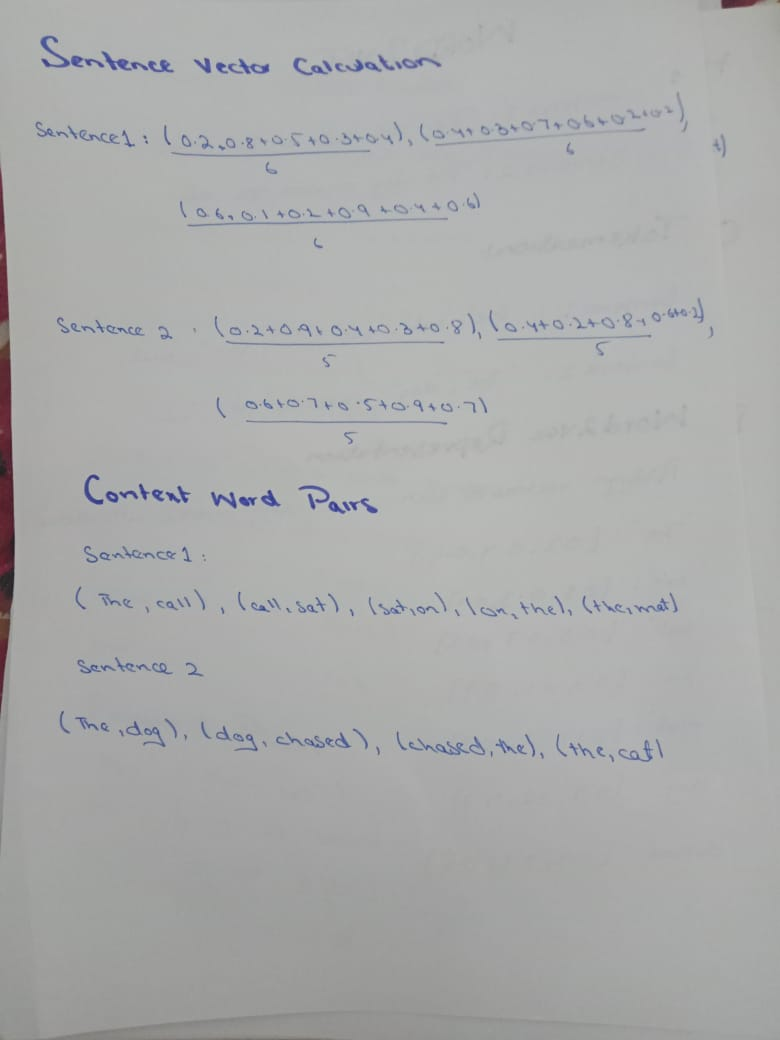 Sentence Vector Calculation
Sentence1 : (0.2,0.8+0.5+0.3+0.4), (0.4+0.3+0.7+0.6+0.2+0.2),
6 6
(0.6,0.1+0.2+0.9+0.4+0.6)
6
Sentence 2 . (0.2+0.9+0.4+0.3+0.8), (0.4+0.2+0.8+0.6+0.2),
5 5
( 0.6+0.7+0.5+0.9+0.7)
5
Content Word Pairs
Sentence1 :
( The , call) , (call, sat) , (sat,on), (on, the), (the,mat)
Sentence 2
(The ,dog), (dog, chased), (chased, the), (the, cat)